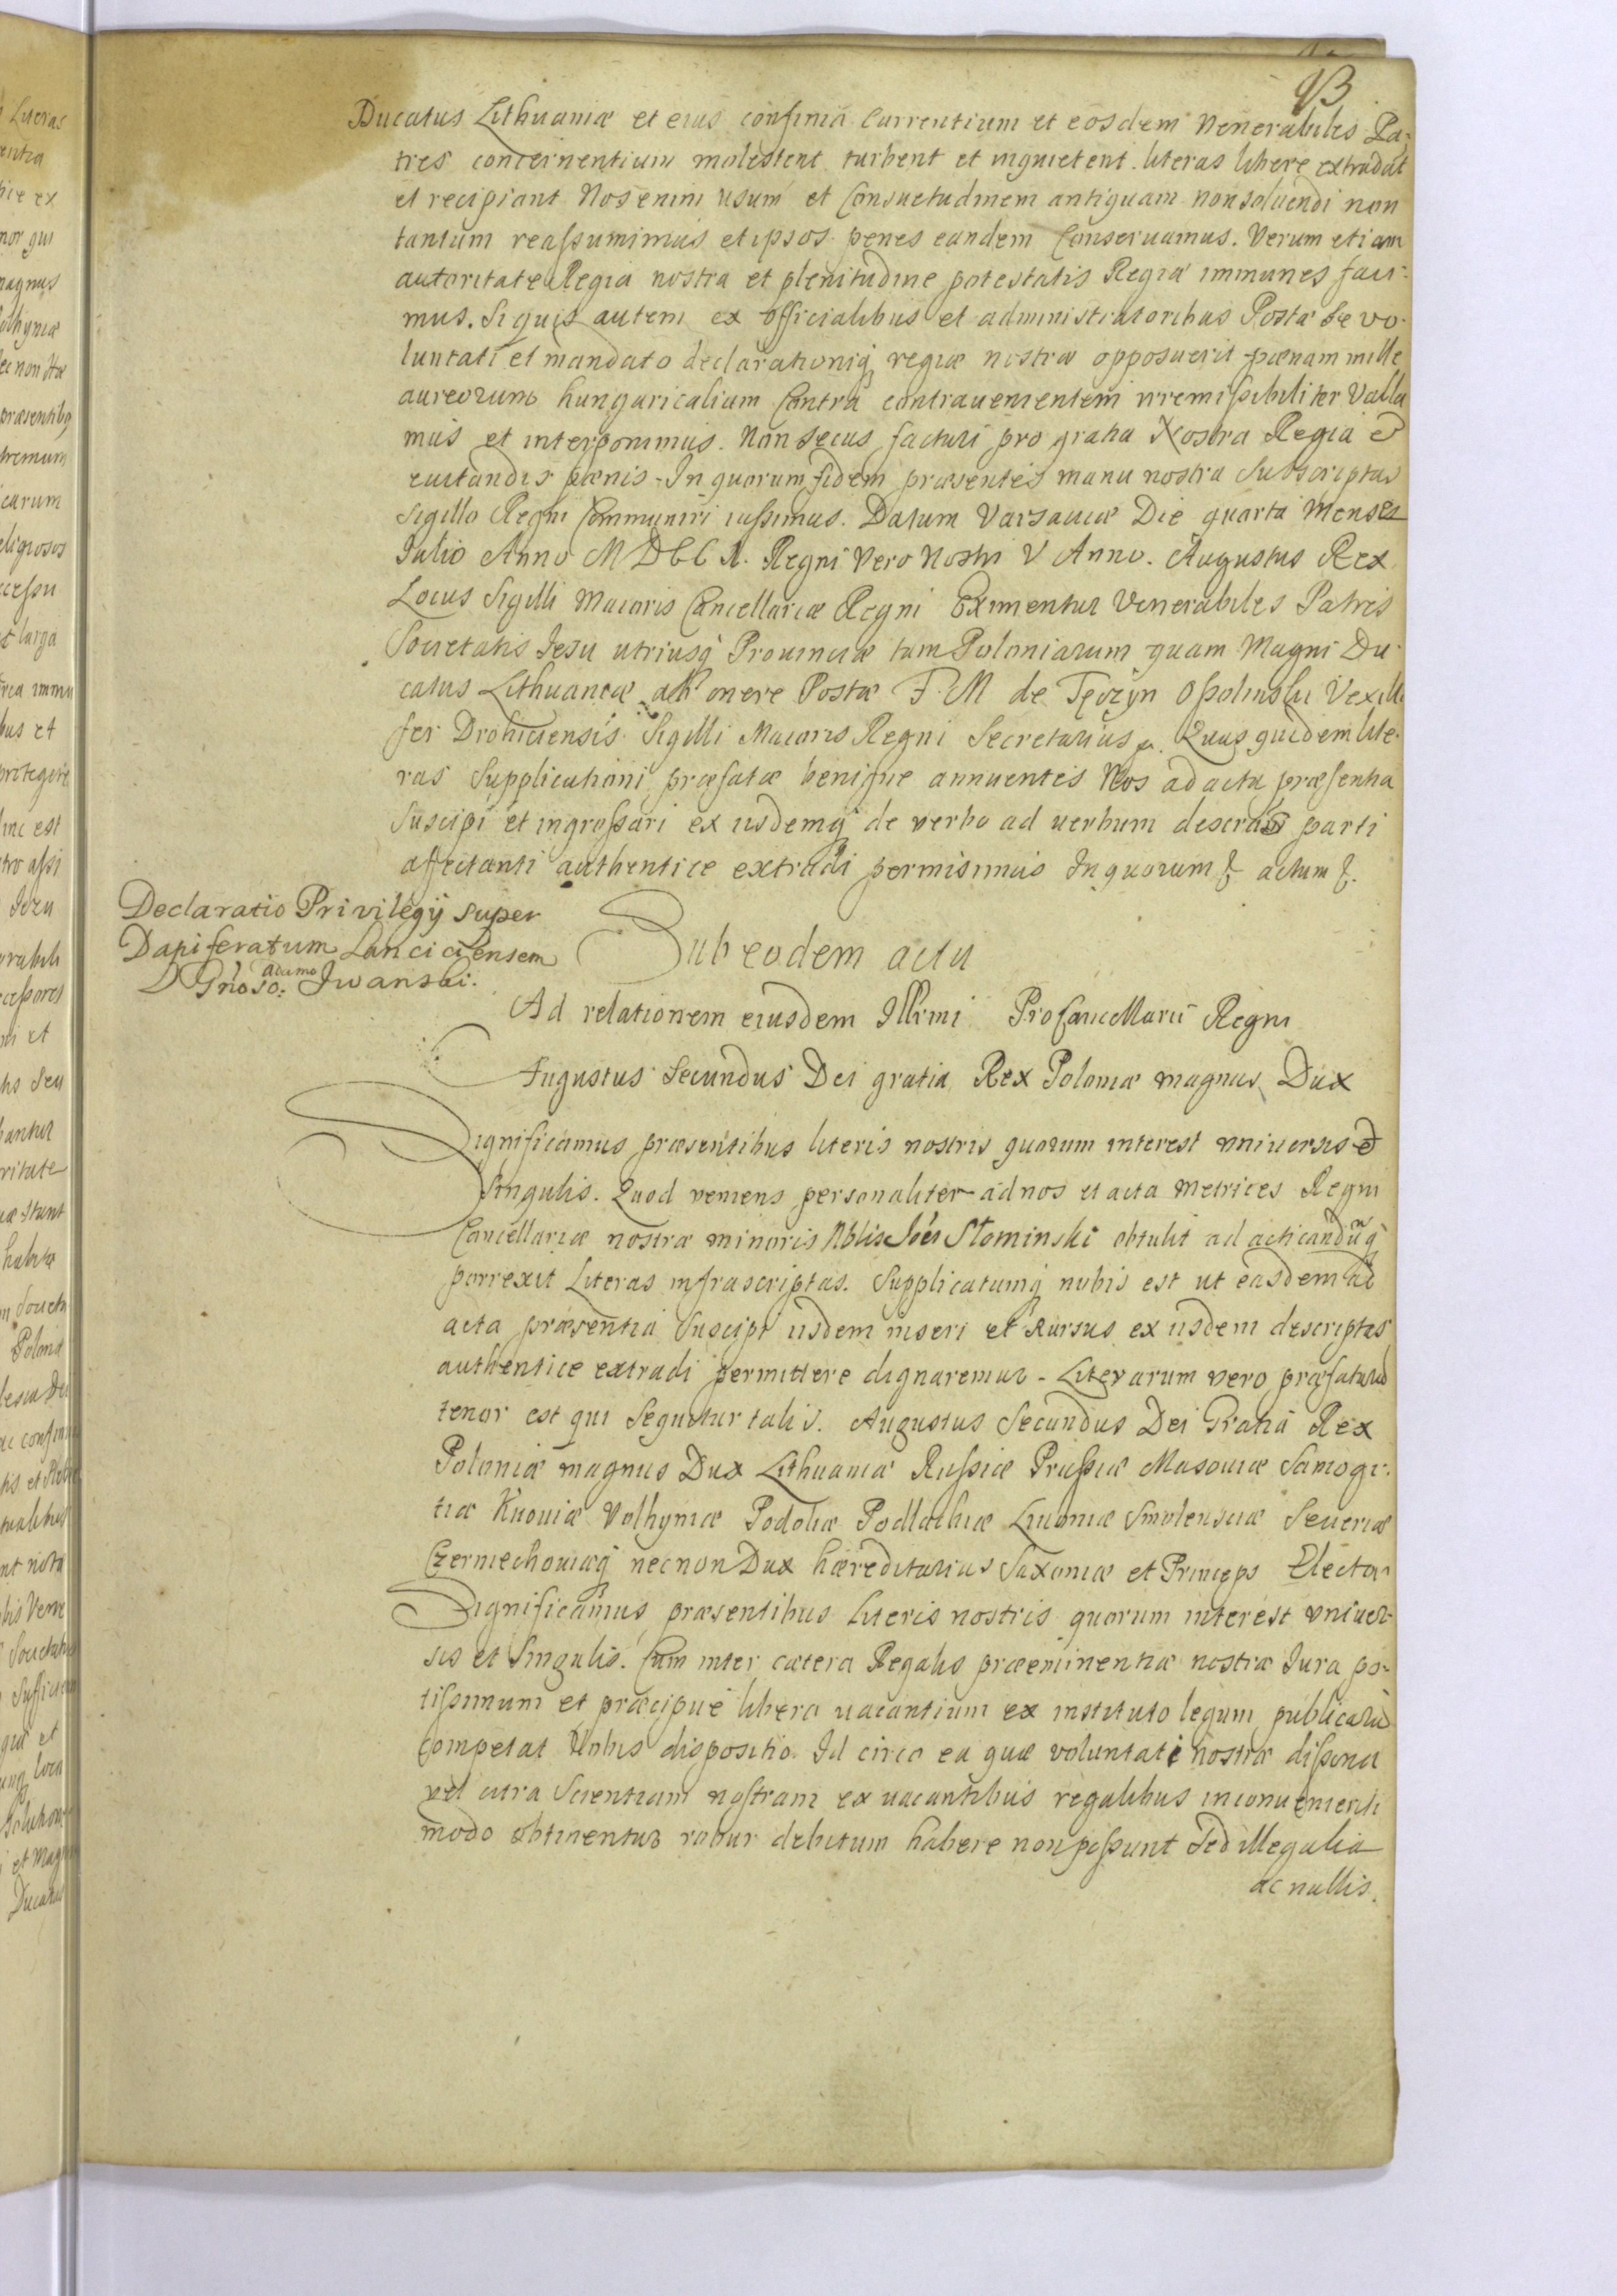 93
Ducatus Lithuaniæ et eius confinia Currentium et eosdem Venerabiles Pa-
tres concernentium molestent turbent et inquietent literas libere extradāt
et recipiant Nos enim usum et Consuetudinem antiquam non soluendi non
tantum reassumimus et ipsos penes eandem Conseruamus. Verum etiam
autoritate Regia nostra et plenitudine potestatis Regiæ immunes faci-
mus. Si quis autem ex Officialibus et administratoribus Postæ se vo-
luntati et mandato declarationiq regiæ nostræ opposuerit pœnam mille
aureorum hungaricalium Contra contrauenientem irremissibiliter Valla
mus et interponimus. Non secus facturi pro gratia Nostra Regia et
euitandis pœnis. In quorum fidem præsentes manu nostra Subscriptas
Sigillo Regni Communiri iussimus. Datum Varsauiæ Die quarta Menses
Julio Anno M DCC Regni Vero Nostri V Anno. Augustus Rex
Locus Sigilli Maioris Cancellariæ Regni Eximentur Venerabiles Patres
Societatis Jesu utriusq Prouinciæ tam Poloniarum quam Magni Du-
catus Lithuaniæ ab onere Postæ F. M de Tęczyn Ossolinski Vexilli
fer Drohiciensis Sigilli Maioris Regni Secretarius Quas quidem lite-
ras Supplicationi præfatæ benigne annuentes Nos ad acta præsentia
Suscipi et ingrossari ex iisdemq de verbo ad uerbum parti
affectanti authentice extradi permisimus In quorum actum
Declaratio Privilegij super
Dapiferatum Lanciciensem
Gnoso: adamo Iwanski:
Sub eodem actu
Ad relationem eiusdem Illrmi ProCancellarii Regni
Augustus Secundus Dei gratia Rex Poloniæ magnus Dux
Significamus præsentibus literis nostris quorum interest vniuersis et
Singulis. Quod veniens personaliter ad nos et acta Metrices Regni
Cancellariæ nostræ minoris Nblis Joes Słominski obtulit ad acticandūq
porrexit Literas infrascriptas. Supplicatumq nobis est ut easdem ad
acta præsentia Suscipi iisdem inseri et Rursus ex iisdem descriptas
authentice extradi permittere dignaremur. Literarum vero præfatarū
tenor est qui Sequitur talis. Augustus Secundus Dei Gratia Rex
Poloniæ magnus Dux Lithuaniæ Russiæ Prussiæ Masouiæ Samogi-
tiæ Kiiouiæ Volhyniæ Podoliæ Podlachiæ Liuoniæ Smolensciæ Seueriæ
Czerniechouiæq necnon Dux hæreditarius Saxoniæ et Princeps Elector
Significamus præsentibus Literis nostris quorum interest vniuer-
sis et Singulis. Cum inter cætera Regalis præeminentiæ nostræ Jura po-
tissimum et præcipue libera uacantium ex instituto legum publicarū
Competat Nobis dispositio. Id circo ea quæ voluntati nostræ dissona
vel citra Scientiam nostram ex uacantibus regalibus inconuenienti
modo obtinentur robur debitum habere non possunt Sed illegalia
ac nullis.